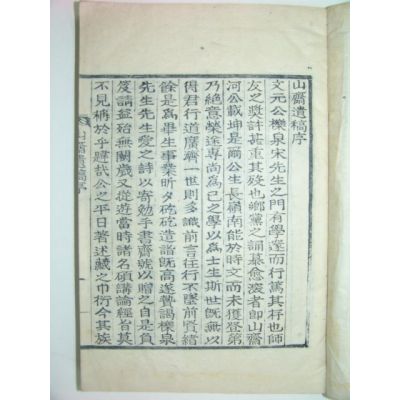 山齋遺稿序
文元公櫟泉宋先生之門有學邃而行篤其存也師
友之奬許甚重其殁也鄉黨之誦慕愈深者卽山齋
河公載坤是爾公生長嶺南能於時文而未獲登第
乃絶意榮途專尚爲己之學以爲士生斯世旣無以
得君行道廣濟一世則多識前言往行不墜前賢緖
餘是爲畢生事業昕夕矻矻造詣旣高遂贄謁櫟泉
先生先生愛之詩以寄勉手書齋號以贈之自是負
笈請益殆無闕歲又從遊當時諸名碩講論經旨莫
不見稱於乎韙哉公之平日著述藏之巾衍今其族
山齋遺稿序